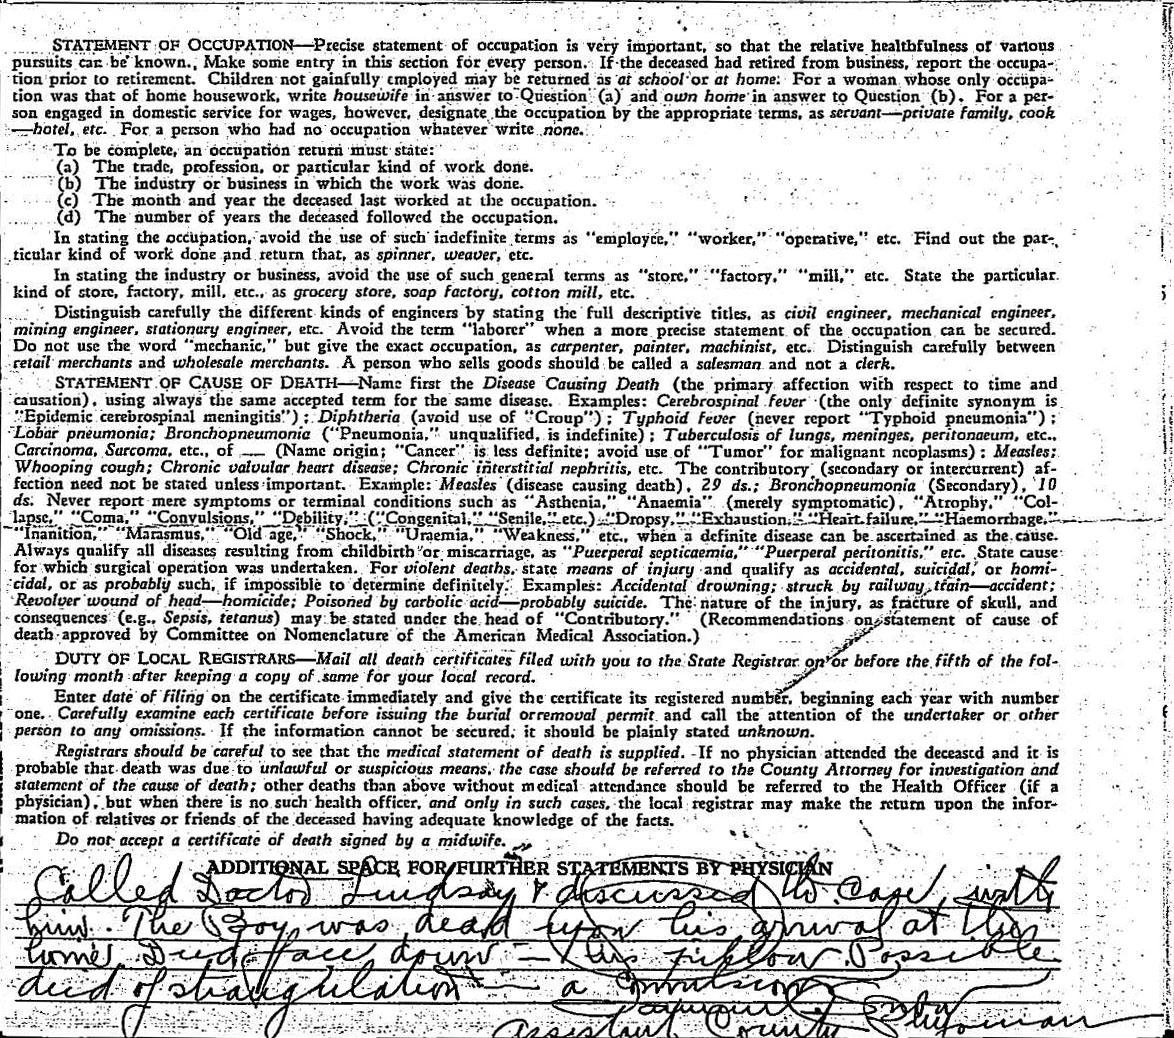 STATEMENT OF OCCUPATION—Precise statement of occupation is very important, so that the relative healthfulness of various
pursuits can be known. Make some entry in this section for every person. If the deceased had retired from business, report the occupa-
tion prior to retirement. Children not gainfully employed may be returned as at school or at home. For a woman whose only occupa-
tion was that of home housework, write housewife in answer to Question (a) and own home in answer to Question (b). For a per-
son engaged in domestic service for wages, however, designate the occupation by the appropriate terms, as servant—private family, cook
—hotel, etc. For a person who had no occupation whatever write none.
To be complete, an occupation return must state:
(a) The trade, profession, or particular kind of work done.
(b) The industry or business in which the work was done.
(c) The month and year the deceased last worked at the occupation.
(d) The number of years the deceased followed the occupation.
In stating the occupation, avoid the use of such indefinite terms as "employee," "worker," "operative," etc. Find out the par-
ticular kind of work done and return that, as spinner, weaver, etc.
In stating the industry or business, avoid the use of such general terms as "store," "factory," "mill," etc. State the particular
kind of store, factory, mill, etc., as grocery store, soap factory, cotton mill, etc.
Distinguish carefully the different kinds of engineers by stating the full descriptive titles, as civil engineer, mechanical engineer,
mining engineer, stationary engineer, etc. Avoid the term "laborer" when a more precise statement of the occupation can be secured.
Do not use the word "mechanic," but give the exact occupation, as carpenter, painter, machinist, etc. Distinguish carefully between
retail merchants and wholesale merchants. A person who sells goods should be called a salesman and not a clerk.
STATEMENT OF CAUSE OF DEATH—Name first the Disease Causing Death (the primary affection with respect to time and
causation), using always the same accepted term for the same disease. Examples: Cerebrospinal fever (the only definite synonym is
"Epidemic cerebrospinal meningitis"); Diphtheria (avoid use of "Croup"); Typhoid fever (never report "Typhoid pneumonia");
Lobar pneumonia; Bronchopneumonia ("Pneumonia," unqualified, is indefinite); Tuberculosis of lungs, meninges, peritonaeum, etc.,
Carcinoma, Sarcoma, etc., of ___ (Name origin; "Cancer" is less definite; avoid use of "Tumor" for malignant neoplasms); Measles;
Whooping cough; Chronic valvular heart disease; Chronic interstitial nephritis, etc. The contributory (secondary or intercurrent) af-
fection need not be stated unless important. Example: Measles (disease causing death), 29 ds.; Bronchopneumonia (Secondary), 10
ds. Never report mere symptoms or terminal conditions such as "Asthenia," "Anaemia" (merely symptomatic), "Atrophy," "Col-
lapse," "Coma," "Convulsions," "Debility," ("Congenital," "Senile," etc.) "Dropsy," "Exhaustion," "Heart failure," "Haemorrhage,"
"Inanition," "Marasmus," "Old age," "Shock," "Uraemia," "Weakness," etc., when a definite disease can be ascertained as the cause.
Always qualify all diseases resulting from childbirth or miscarriage, as "Puerperal septicaemia," "Puerperal peritonitis," etc. State cause
for which surgical operation was undertaken. For violent deaths, state means of injury and qualify as accidental, suicidal, or homi-
cidal, or as probably such, if impossible to determine definitely. Examples: Accidental drowning; struck by railway train—accident;
Revolver wound of head—homicide; Poisoned by carbolic acid—probably suicide. The nature of the injury, as fracture of skull, and
consequences (e.g., Sepsis, tetanus) may be stated under the head of "Contributory." (Recommendations on statement of cause of
death approved by Committee on Nomenclature of the American Medical Association.)
DUTY OF LOCAL REGISTRARS—Mail all death certificates filed with you to the State Registrar on or before the fifth of the fol-
lowing month after keeping a copy of same for your local record.
Enter date of filing on the certificate immediately and give the certificate its registered number, beginning each year with number
one. Carefully examine each certificate before issuing the burial or removal permit and call the attention of the undertaker or other
person to any omissions. If the information cannot be secured, it should be plainly stated unknown.
Registrars should be careful to see that the medical statement of death is supplied. If no physician attended the deceased and it is
probable that death was due to unlawful or suspicious means, the case should be referred to the County Attorney for investigation and
statement of the cause of death; other deaths than above without medical attendance should be referred to the Health Officer (if a
physician), but when there is no such health officer, and only in such cases, the local registrar may make the return upon the infor-
mation of relatives or friends of the deceased having adequate knowledge of the facts.
Do not accept a certificate of death signed by a midwife.
ADDITIONAL SPACE FOR FURTHER STATEMENTS BY PHYSICIAN
Called Doctor Lindsay & discussed the Case with
him. The Boy was dead upon his arrival at the
home. Died face down - his pillow. Possible
died of strangulation - a Convulsion
Assistant County Physician